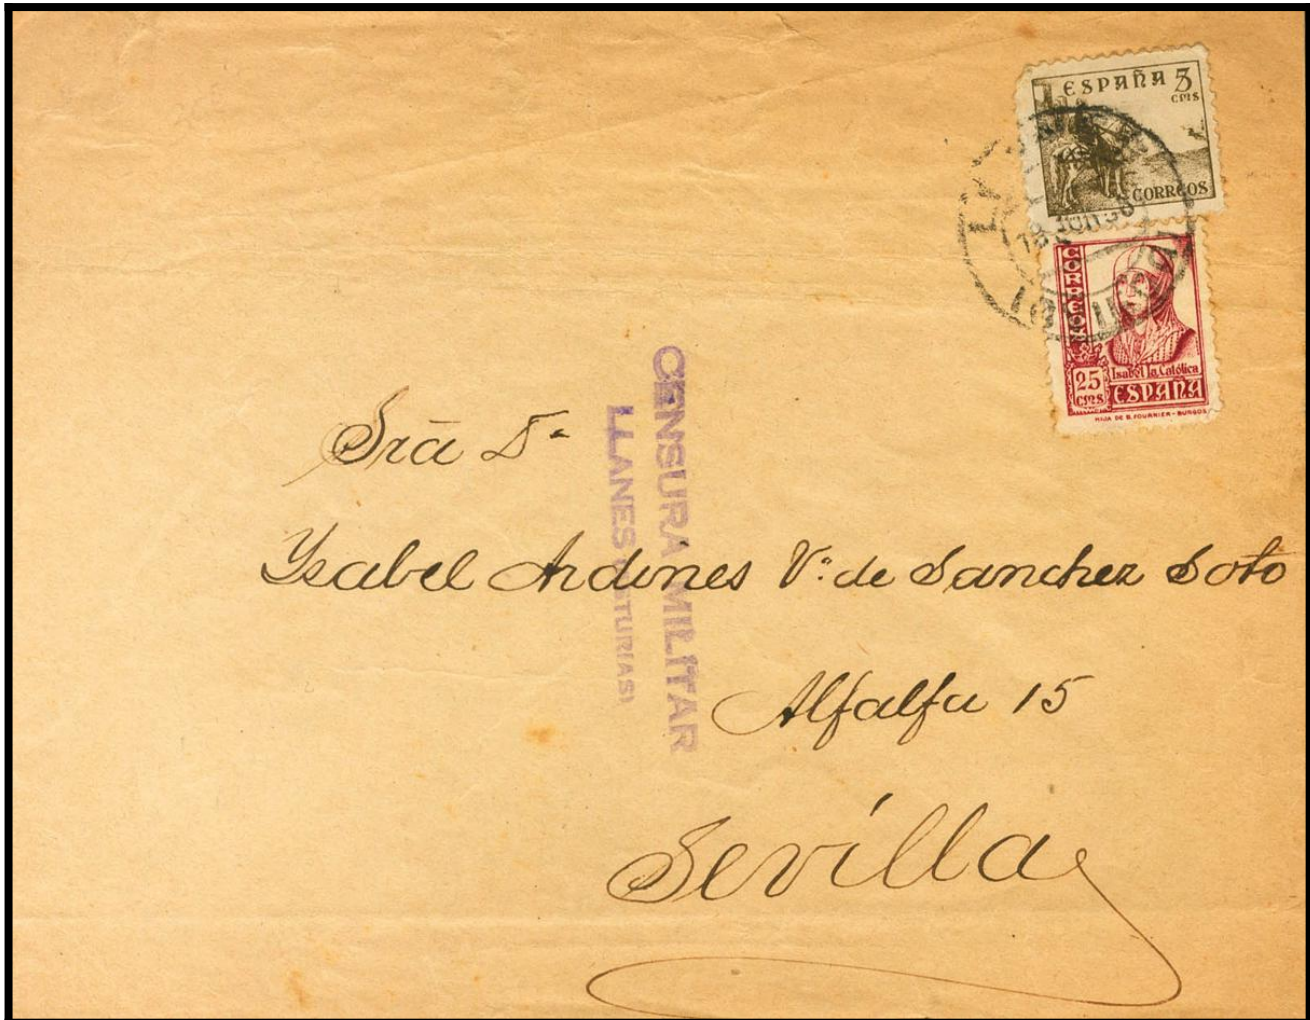 ESPAÑA 5
CMS
CORREOS
18 JUN 38
CORREOS
Isabel la Católica
25
CMS ESPAÑA
HIJA DE B. FOURNIER - BURGOS
CENSURA MILITAR
LLANES (ASTURIAS)
Sra Dª
Ysabel Ardines Vª de Sanchez Soto
Alfalfa 15
Sevilla